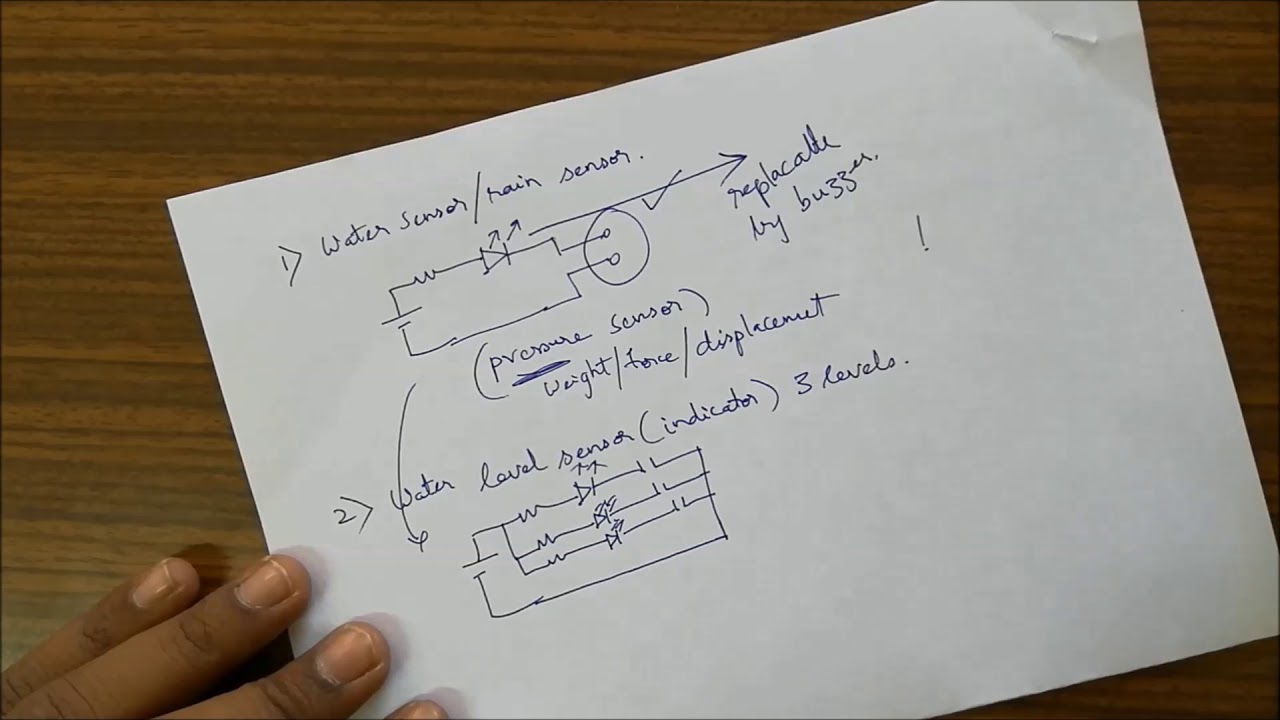 1) Water sensor/rain sensor.
replacable
by buzzer.
(pressure sensor)
Weight/force/displacement
2) Water level sensor (indicator) 3 levels.